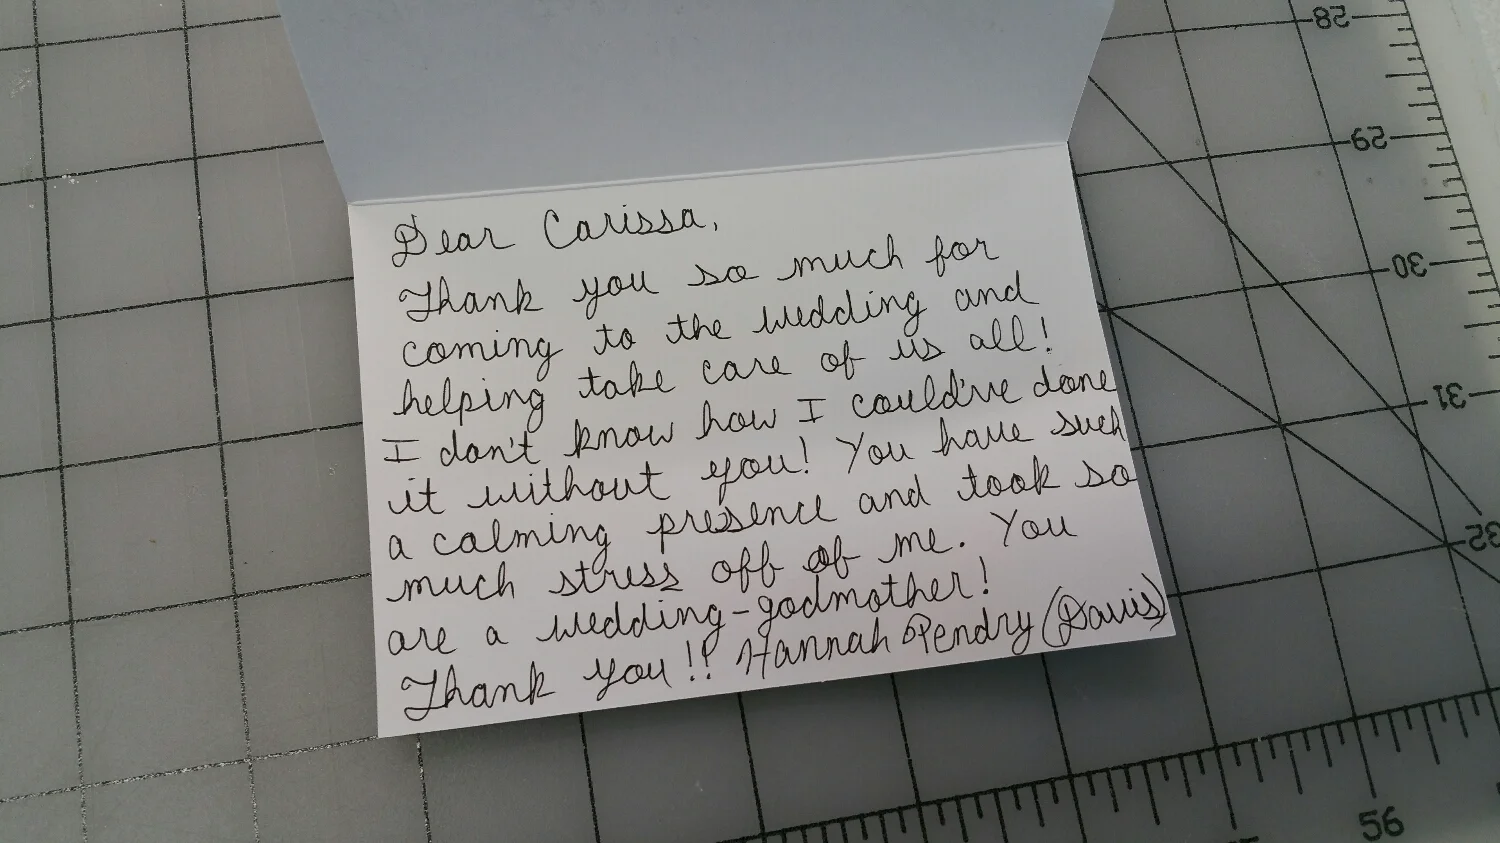 Dear Carissa,
Thank you so much for
coming to the wedding and
helping take care of us all!
I don't know how I could've done
it without you! You have such
a calming presence and took so
much stress off of me. You
are a wedding-godmother!
Thank you!! Hannah Pendry (Davis)
28
29
30
31
32
56